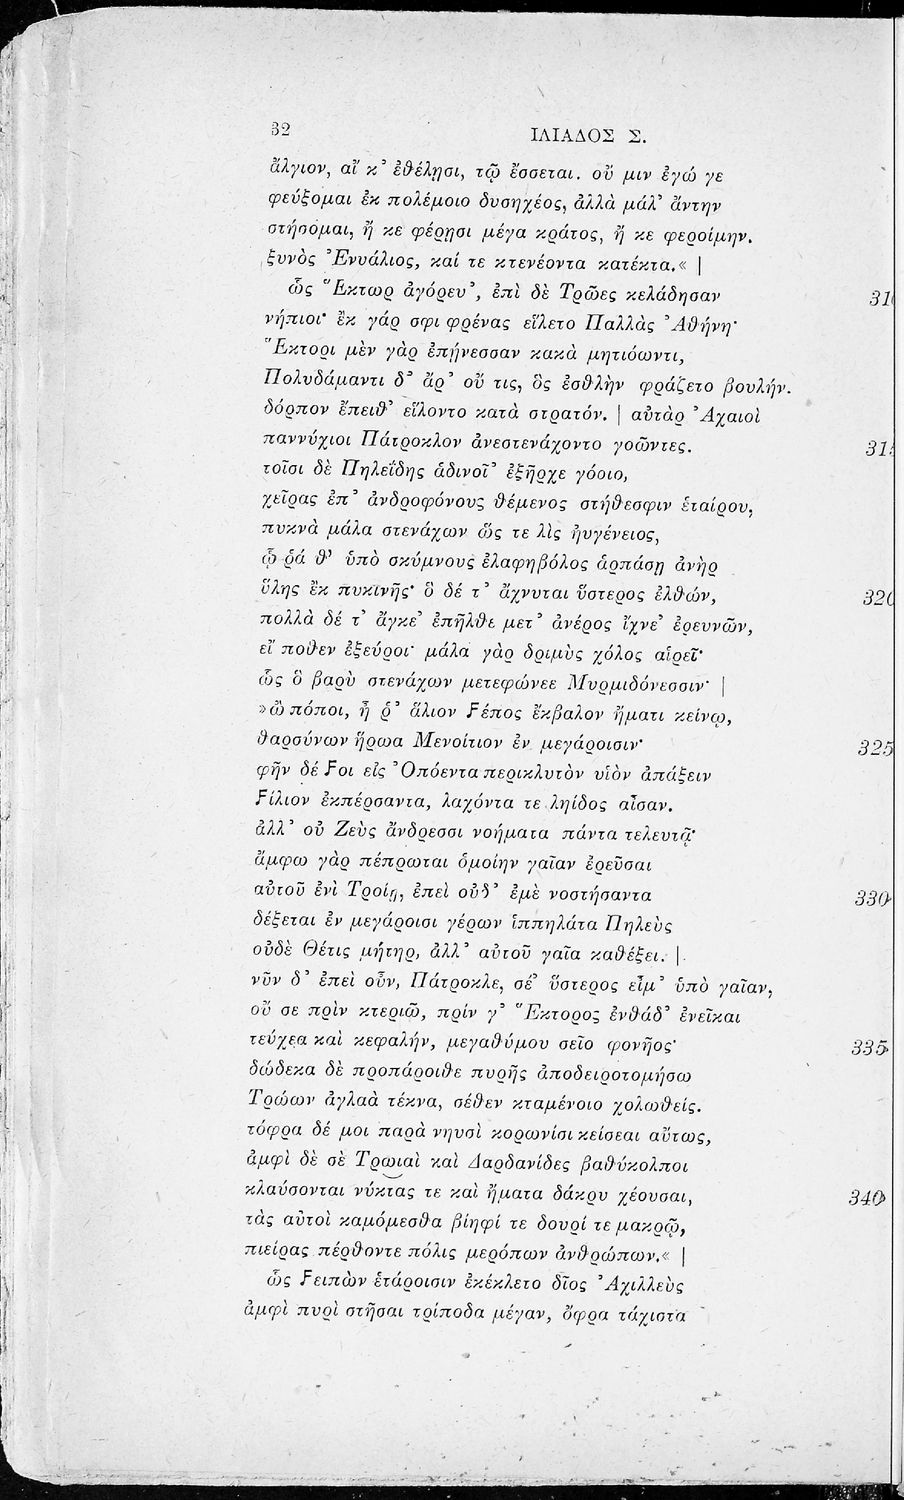 32 ΙΛΙΑΔΟΣ Σ.
ἄλγιον, αἴ κ’ ἐθέλῃσι, τῷ ἔσσεται. οὔ μιν ἐγώ γε
φεύξομαι ἐκ πολέμοιο δυσηχέος, ἀλλὰ μάλ’ ἄντην
στήσομαι, ἤ κε φέρῃσι μέγα κράτος, ἤ κε φεροίμην.
ξυνὸς Ἐνυάλιος, καί τε κτενέοντα κατέκτα.« |
ὣς Ἕκτωρ ἀγόρευ’, ἐπὶ δὲ Τρῶες κελάδησαν 31
νήπιοι· ἔκ γάρ σφι φρένας εἵλετο Παλλὰς Ἀθήνη·
Ἕκτορι μὲν γὰρ ἐπῄνεσσαν κακὰ μητιόωντι,
Πολυδάμαντι δ’ ἄρ’ οὔ τις, ὃς ἐσθλὴν φράζετο βουλήν.
δόρπον ἔπειθ’ εἵλοντο κατὰ στρατόν. | αὐτὰρ Ἀχαιοὶ
παννύχιοι Πάτροκλον ἀνεστενάχοντο γοῶντες. 31
τοῖσι δὲ Πηλεΐδης ἁδινοῖ’ ἐξῆρχε γόοιο,
χεῖρας ἐπ’ ἀνδροφόνους θέμενος στήθεσφιν ἑταίρου,
πυκνὰ μάλα στενάχων ὥς τε λὶς ἠυγένειος,
ᾧ ῥά θ’ ὑπὸ σκύμνους ἐλαφηβόλος ἁρπάσῃ ἀνὴρ
ὕλης ἒκ πυκινῆς· ὃ δέ τ’ ἄχνυται ὕστερος ἐλθών, 320
πολλὰ δέ τ’ ἄγκε’ ἐπῆλθε μετ’ ἀνέρος ἴχνε’ ἐρευνῶν,
εἴ ποθεν ἐξεύροι· μάλα γὰρ δριμὺς χόλος αἱρεῖ·
ὣς ὃ βαρὺ στενάχων μετεφώνεε Μυρμιδόνεσσιν· |
»ὢ πόποι, ἦ ῥ’ ἅλιον ϝέπος ἔκβαλον ἤματι κείνῳ,
θαρσύνων ἥρωα Μενοίτιον ἐν μεγάροισιν· 325
φῆν δέ ϝοι εἰς Ὀπόεντα περικλυτὸν υἱὸν ἀπάξειν
ϝίλιον ἐκπέρσαντα, λαχόντα τε ληίδος αἶσαν.
ἀλλ’ οὐ Ζεὺς ἄνδρεσσι νοήματα πάντα τελευτᾷ·
ἄμφω γὰρ πέπρωται ὁμοίην γαῖαν ἐρεῦσαι
αὐτοῦ ἐνὶ Τροίῃ, ἐπεὶ οὐδ’ ἐμὲ νοστήσαντα 330
δέξεται ἐν μεγάροισι γέρων ἱππηλάτα Πηλεὺς
οὐδὲ Θέτις μήτηρ, ἀλλ’ αὐτοῦ γαῖα καθέξει. |
νῦν δ’ ἐπεὶ οὖν, Πάτροκλε, σέ’ ὕστερος εἶμ’ ὑπὸ γαῖαν,
οὔ σε πρὶν κτεριῶ, πρίν γ’ Ἕκτορος ἐνθάδ’ ἐνεῖκαι
τεύχεα καὶ κεφαλήν, μεγαθύμου σεῖο φονῆος· 335
δώδεκα δὲ προπάροιθε πυρῆς ἀποδειροτομήσω
Τρώων ἀγλαὰ τέκνα, σέθεν κταμένοιο χολωθείς.
τόφρα δέ μοι παρὰ νηυσὶ κορωνίσι κείσεαι αὔτως,
ἀμφὶ δὲ σὲ Τρῳαὶ καὶ Δαρδανίδες βαθύκολποι
κλαύσονται νύκτας τε καὶ ἤματα δάκρυ χέουσαι, 340
τὰς αὐτοὶ καμόμεσθα βίηφί τε δουρί τε μακρῷ,
πιείρας πέρθοντε πόλις μερόπων ἀνθρώπων.« |
ὣς ϝειπὼν ἑτάροισιν ἐκέκλετο δῖος Ἀχιλλεὺς
ἀμφὶ πυρὶ στῆσαι τρίποδα μέγαν, ὄφρα τάχιστα